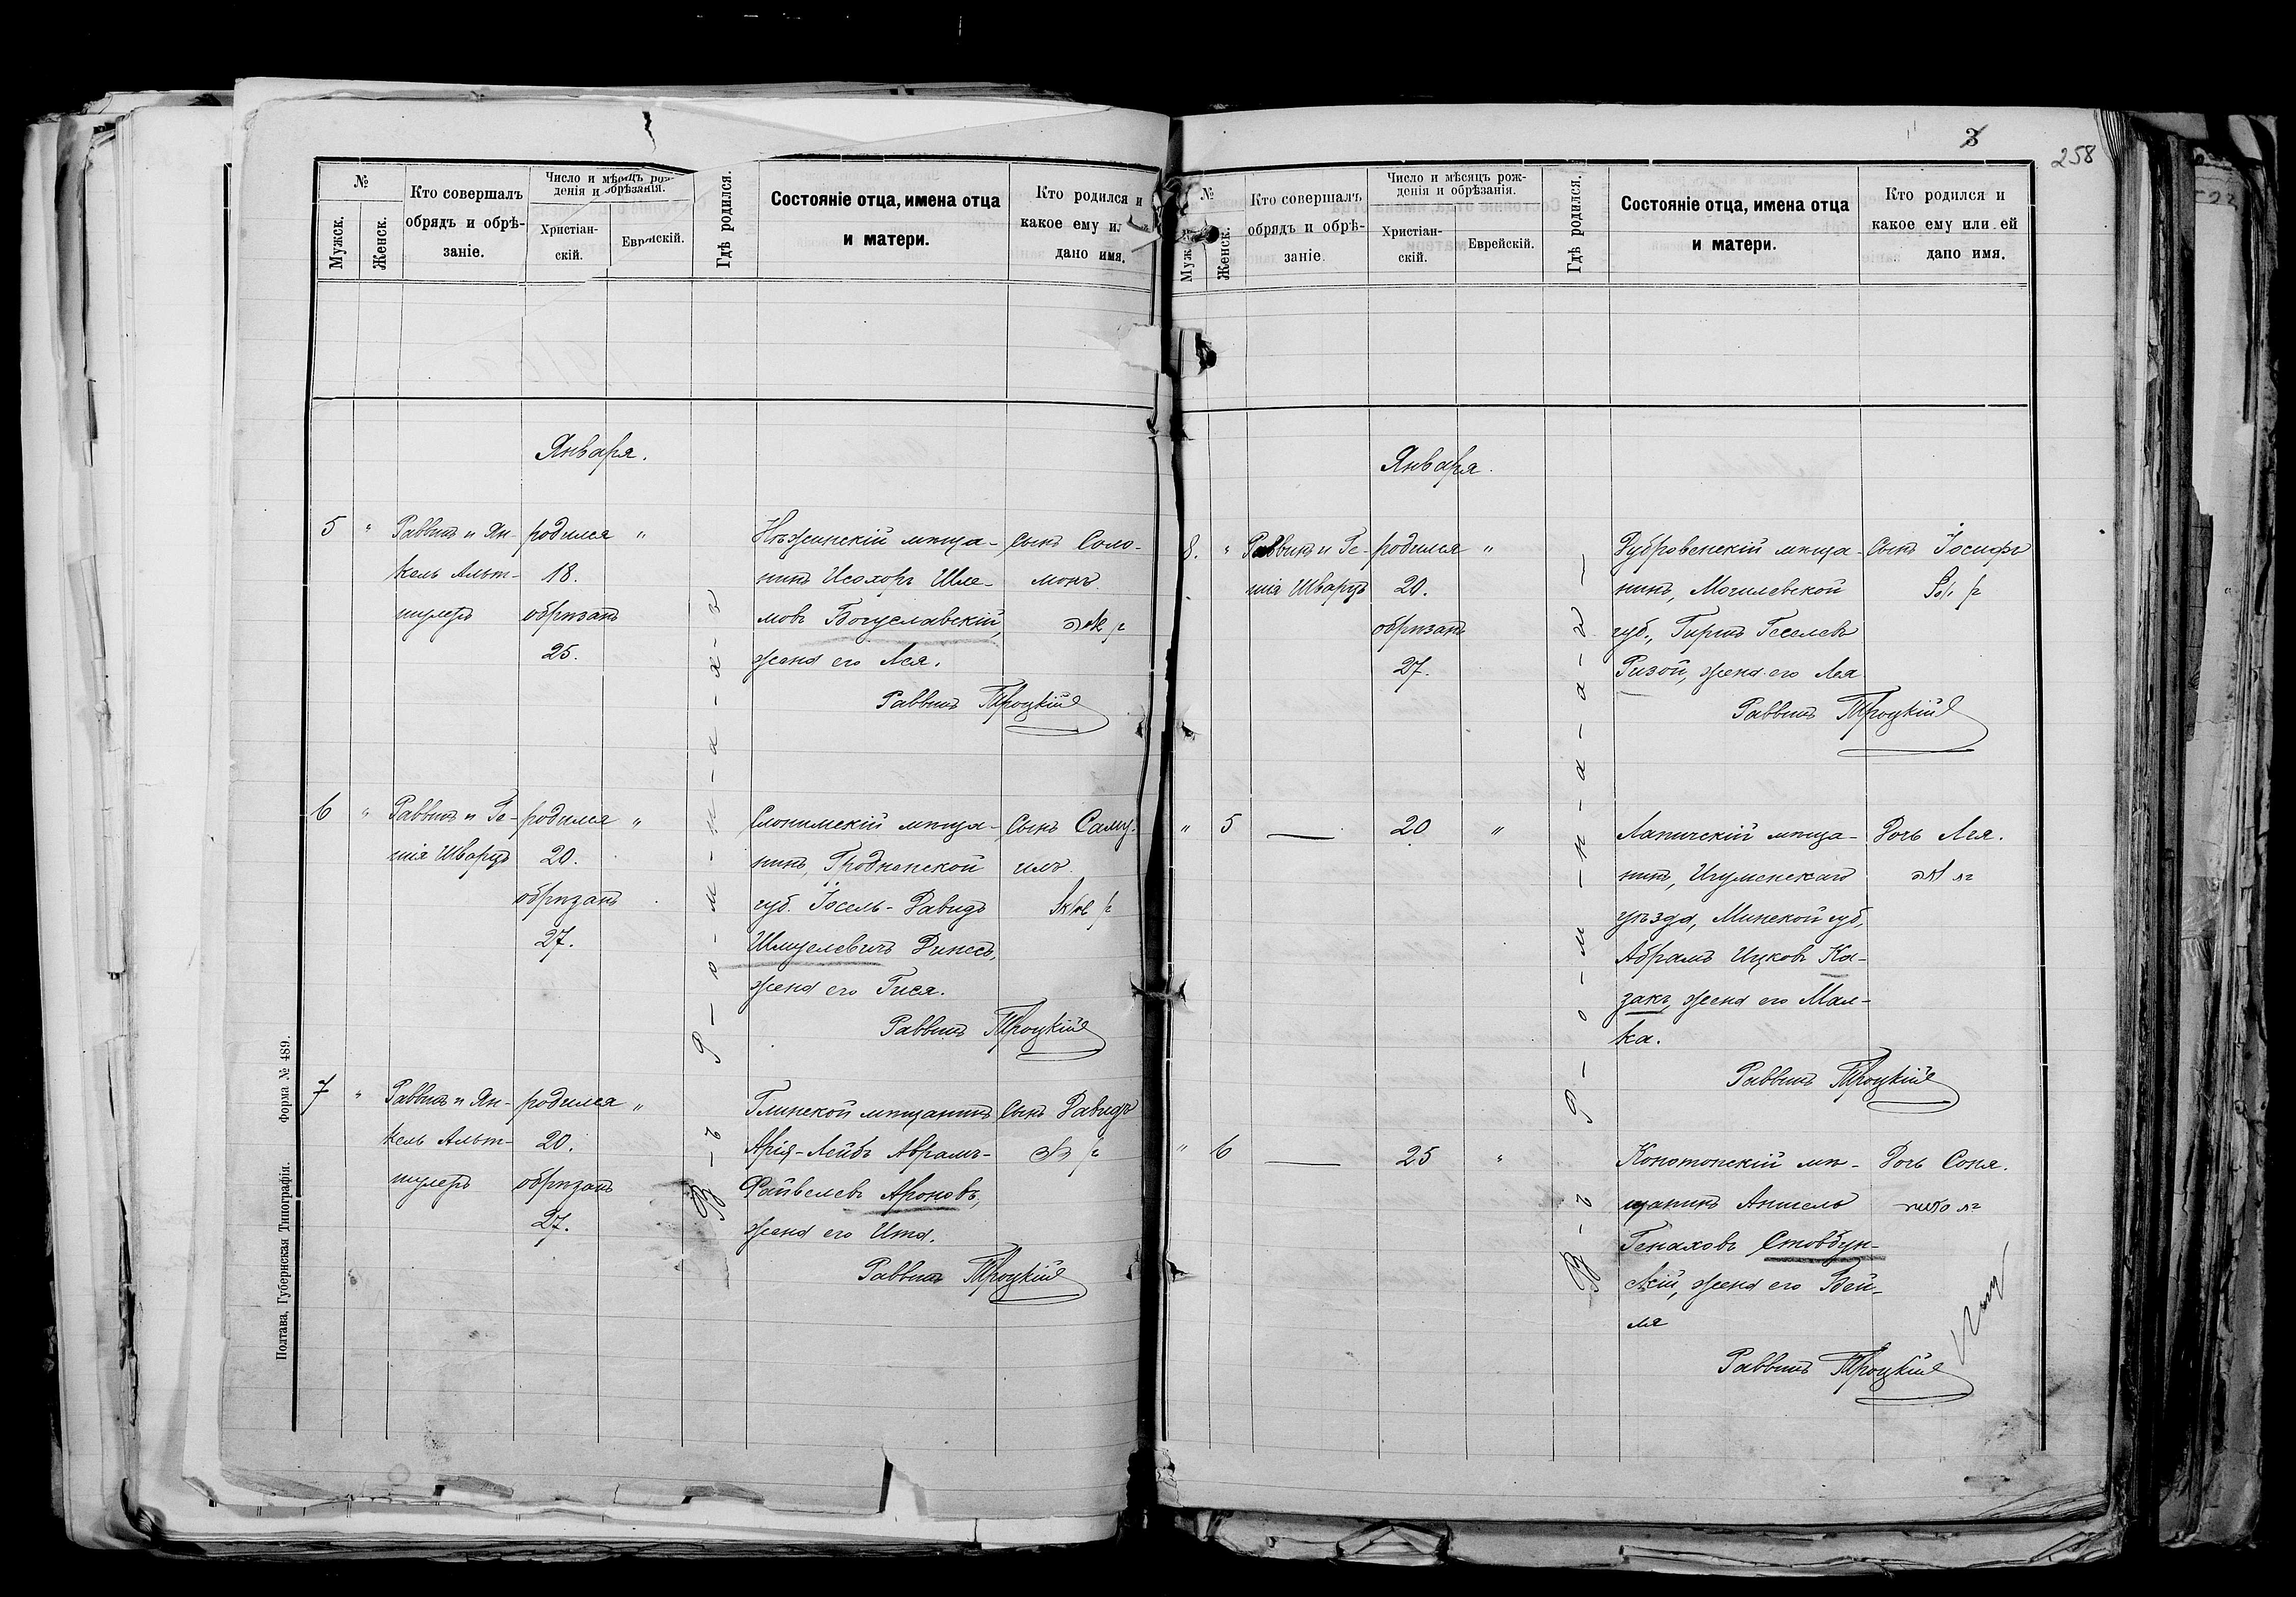 №
Мужск.
Женск.
Кто совершалъ
обрядъ и обрѣ-
заніе.
Число и мѣсяцъ рож-
денія и обрѣзанія.
Христіан-
скій.
Еврейскій.
Гдѣ родился.
Состояніе отца, имена отца
и матери.
Кто родился и
какое ему или
дано имя.
Января.
5 " Раввинъ и Ян-
кель Альт-
шулеръ
родился "
18.
обрѣзанъ
25.
Нѣжинскій мѣща-
нинъ Исохоръ Шле-
мовъ Богуславскій,
жена его Лея.
Раввинъ Троцкій
Сынъ Соло-
монъ
6 " Раввинъ и Ге-
шія Шварцъ
родился "
20.
обрѣзанъ
27.
Слонимскій мѣща-
нинъ, Гродненской
губ. Іосель-Давидъ
Шмулевичъ Динесъ,
жена его Гися.
Раввинъ Троцкій
Сынъ Саму-
илъ.
7 " Раввинъ и Ян-
кель Альт-
шулеръ
родился "
20.
обрѣзанъ
27.
Глинской мѣщанинъ
Арія-Лейбъ Аврамъ-
Файвелевъ Ароновъ,
жена его Ита.
Раввинъ Троцкій
Сынъ Давидъ
Полтава, Губернская Типографія. Форма № 489.
3
258
№
Муж
Женск.
Кто совершалъ
обрядъ и обрѣ-
заніе
Число и мѣсяцъ рож-
денія и обрѣзанія.
Христіан-
скій.
Еврейскій.
Гдѣ родился.
Состояніе отца, имена отца
и матери.
Кто родился и
какое ему или ей
дано имя.
Января.
8. " Раввинъ и Ге-
шія Шварцъ
родился "
20.
обрѣзанъ
27.
Дубровенскій мѣща-
нинъ, Могилевской
губ., Гиршъ Геселевъ
Ризой, жена его Лея
Раввинъ Троцкій
Сынъ Іосифъ
" 5 — 20 "
Лапичскій мѣща-
нинъ, Игуменскаго
уѣзда, Минской губ,
Абрамъ Ицковъ Ка-
закъ, жена его Мал-
ка.
Раввинъ Троцкій
Дочь Лея.
" 6 — 25 "
Конотопскій мѣ-
щанинъ Аншель
Генаховъ Стовбун-
скій, жена его Бей-
ля
Раввинъ Троцкій
Дочь Соня.